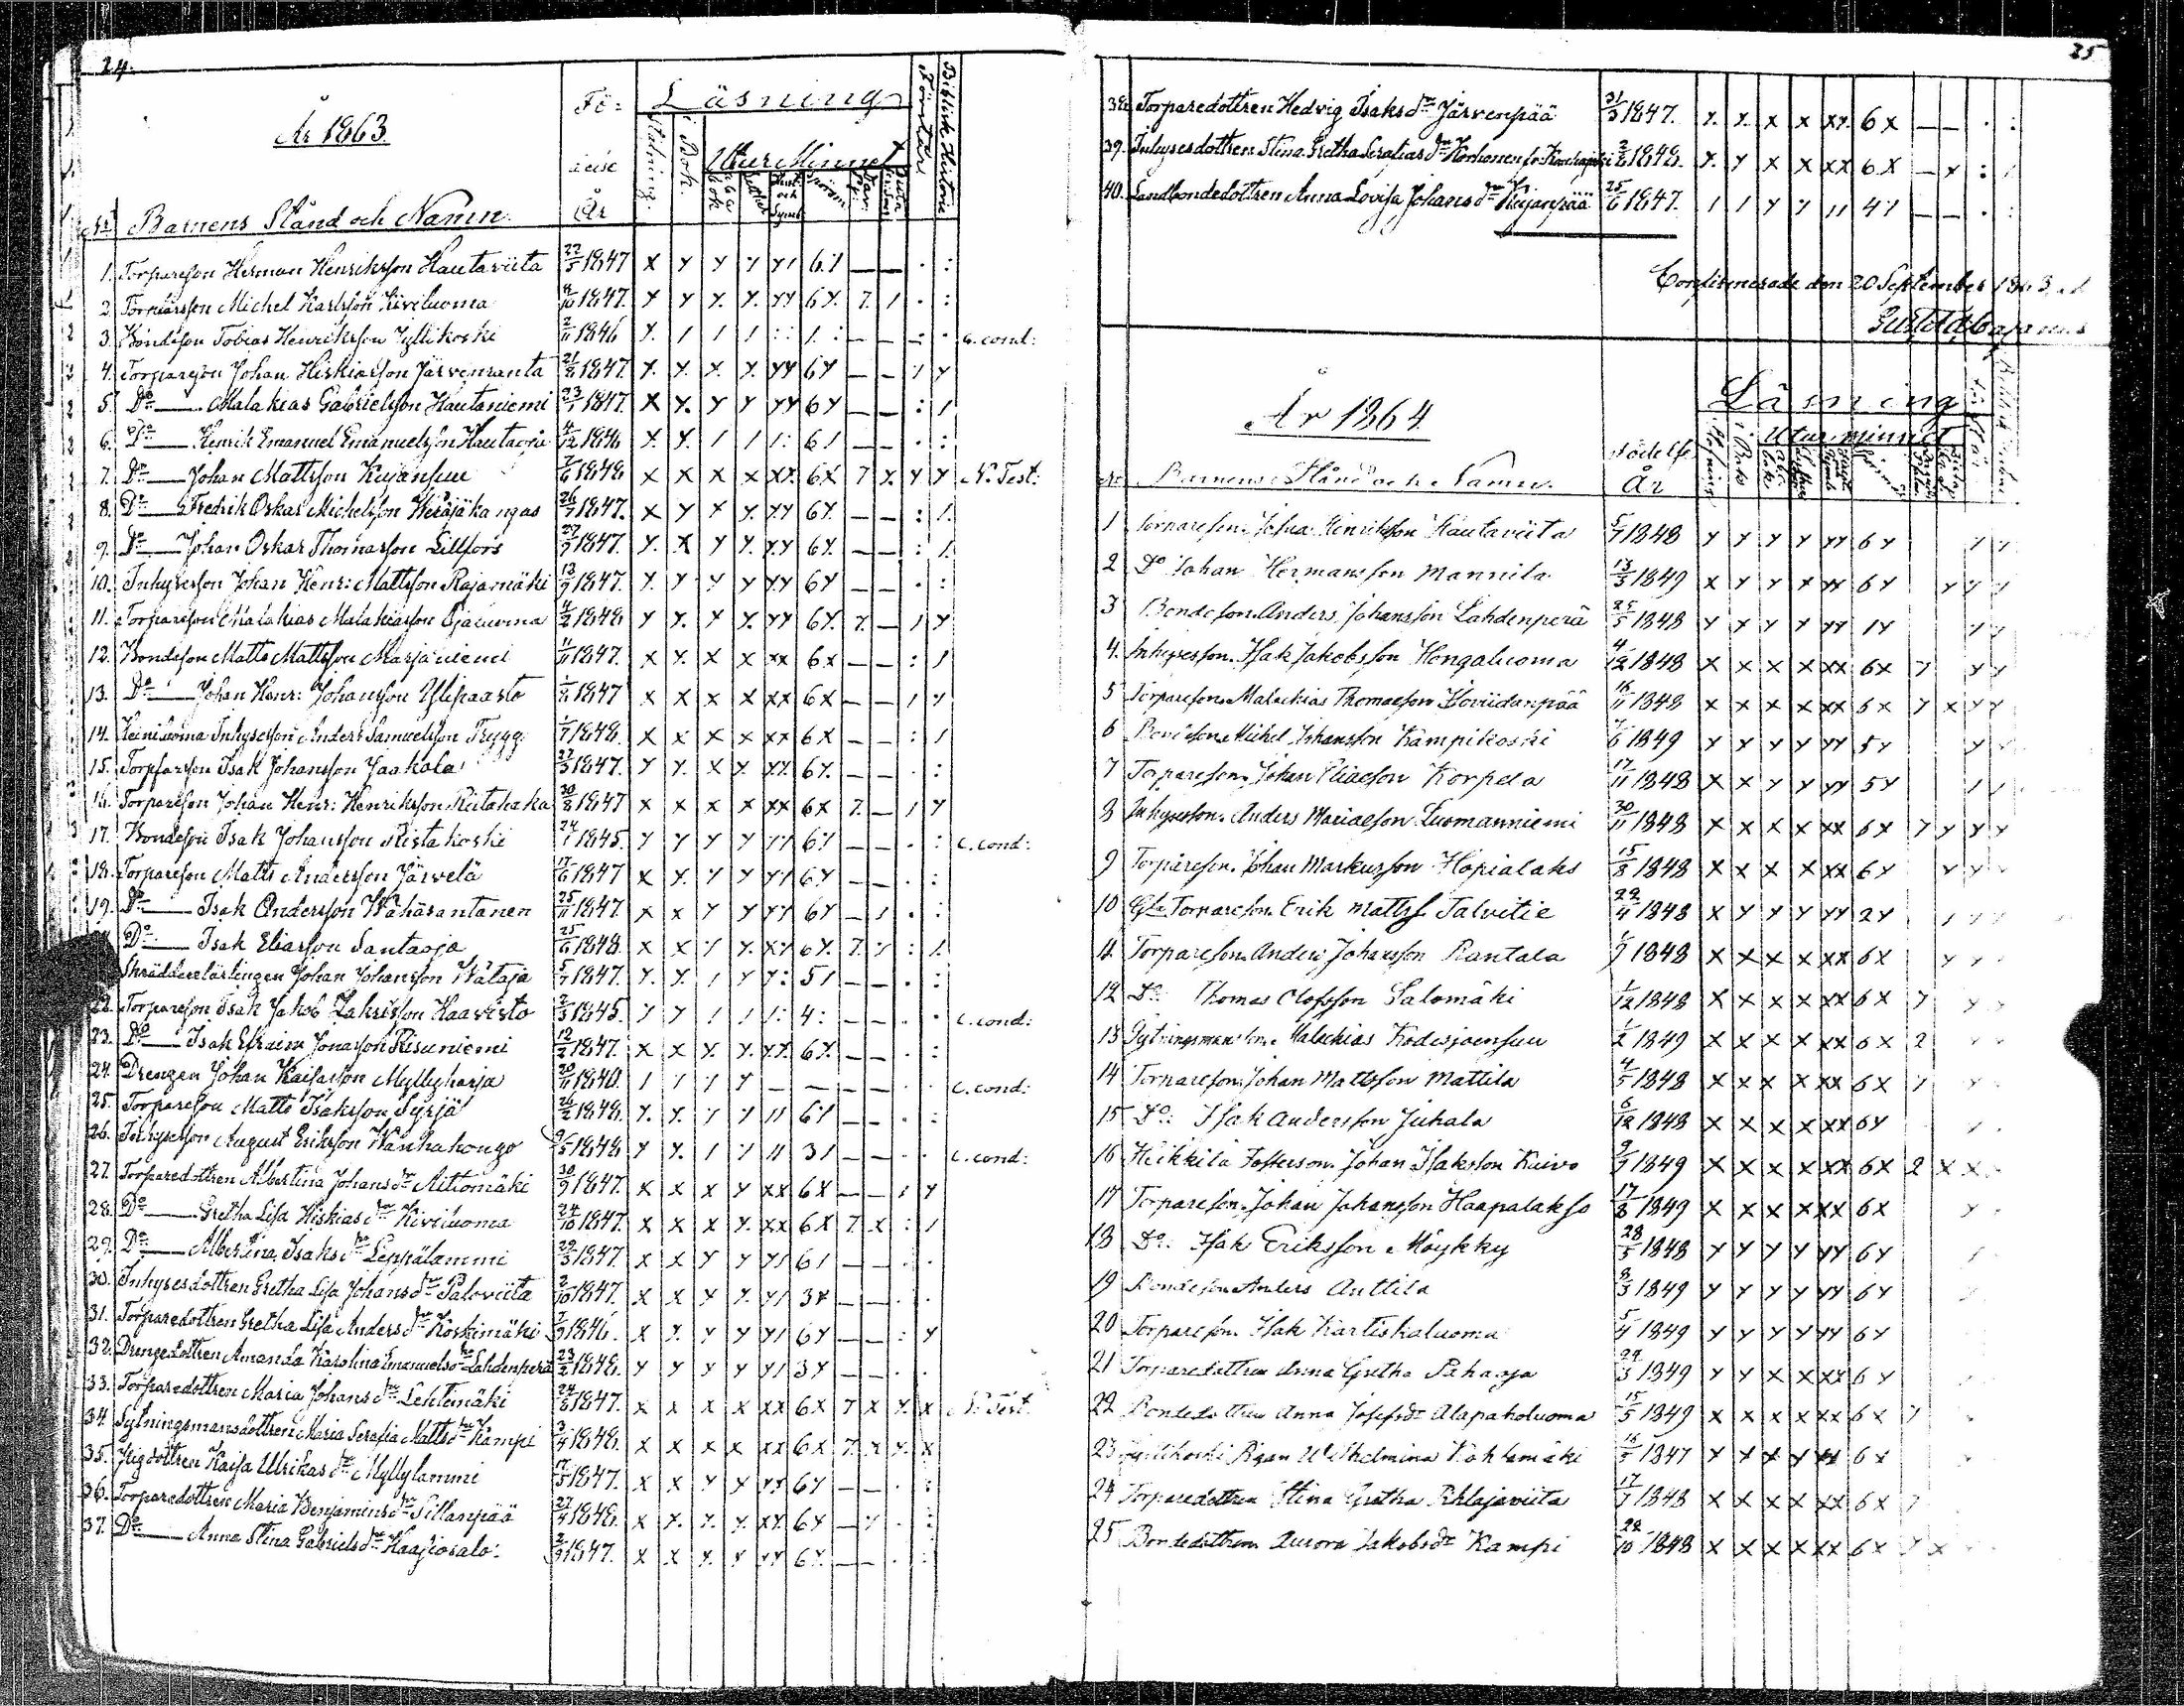 24.
År 1863.
Fö-
Läsning
Förståndet
Biblisk Historie
delse
Utur Minnet
i Bok
År
No Barnens Stånd och Namn.
1. Torpareson Herman Henriksson Hautaviita 22/5 1847 X Y Y Y Y1 61 — — . :
2. Torpareson Michel Karlsson Kiviluoma 4/10 1847. Y Y Y. Y. YY 6Y. 7. 1 . :
3. Bondeson Tobias Henriksson Jyllikoski 2/11 1846 Y. 1 1 1 : : 1. : — — . . c. cond:
4. Torpareson Johan Hiskiasson Järvenranta 21/8 1847. Y. Y. X. Y. YY 6Y — — 1 Y
5. Do — Malakias Gabrielsson Hautaniemi 23/1 1847. X Y. Y Y YY 6Y — — : 1
6. Do — Henrik Emanuel Emanuelsson Hautaoja 4/12 1846 Y. Y. 1 1 1: 61 — — . :
7. Do — Johan Mattsson Kujansuu 7/6 1848 X X X X XX. 6X 7 X Y Y N. Test:
8. Do — Fredrik Oskar Michelsson Heräjäkangas 26/7 1847. X Y X Y. YY 6Y. — — : 1.
9. Do — Johan Oskar Thomasson Lillfors 27/9 1847. Y. X Y Y. YY 6Y. — — : 1.
10. Inhyseson Johan Henr: Mattsson Rajamäki 13/9 1847. Y. Y Y Y YY 6Y — — . :
11. Torpareson Malakias Malakiasson Ojaluoma 4/2 1848. Y Y. X Y. YY 6Y. 7. — 1 Y
12. Bondeson Matts Mattsson Marjaniemi 11/11 1847. X Y. X X XX 6X — — : 1
13. Do — Johan Henr: Johansson Ylipaasto 1/11 1847 X X X X XX 6X — — 1 Y
14. Heiniluoma Inhyseson Anders Samuelsson Trygg 1/7 1848. X X X X XX 6X — — : 1
15. Torpareson Isak Johansson Jaakola 22/3 1847. Y Y. X Y. YY. 6Y. — — . :
16. Torpareson Johan Henr: Henriksson Riitahaka 30/8 1847 X X X X XX 6X 7. — 1 Y
17. Bondeson Isak Johansson Ristakoski 24/7 1845. Y Y Y Y Y1 61 — — . : c. cond:
18. Torpareson Matts Andersson Järvelä 17/6 1847 X Y. Y Y Y1 6Y — — . :
19. Do — Isak Andersson Wähäsantanen 25/11 1847. X X Y Y YY 6Y — 1 . :
Do — Isak Eliasson Santaoja 25/6 1848. X X Y Y. XY 6Y. 7. Y : 1.
Skräddarelärlingen Johan Johansson Wätajä 5/7 1847. Y. Y. 1 Y Y: 51 — — . :
22. Torpareson Isak Jakob Zakrisson Haavisto 2/3 1845. Y Y 1 1 1: 4: — — . . c. cond:
23. Do — Isak Efraim Jonasson Risuniemi 12/2 1847. X X Y. Y. YY. 6Y. — — . :
24. Drengen Johan Kaisasson Myllyharja 20/11 1840. 1 1 1 Y — — — — . . c. cond:
25. Torpareson Matts Isaksson Syrjä 26/2 1848. Y. Y. Y Y 11 61 — — . :
26. Inhyseson August Eriksson Wanhahongo 1848 Y Y. 1 1 11 31 — — . . c. cond:
27. Torparedottren Albertina Johansdr Aittomäki 30/9 1847. X X X Y XX 6X — — 1 Y
28. Do — Gretha Lisa Hiskiasdr Kiviluoma 24/10 1847. X X X Y. XX 6X 7. X : 1
29. Do — Albertina Isaksdr Leppälammi 22/3 1847. X X Y Y Y1 61 — — . .
30. Inhysesdottren Gretha Lisa Johansdr Paloviita 2/10 1847. X X Y Y. Y1 3Y — — . .
31. Torparedottren Gretha Lisa Andersdr Koskimäki 7/9 1846. X Y. Y Y Y1 6Y — — : Y
32. Drengedottren Amanda Karolina Emanuelsdr Lahdenperä 23/2 1848. Y Y Y Y Y1 3Y — — . .
33. Torparedottren Maria Johansdr Lehtimäki 24/8 1847. X X X X XX 6X 7 X X. X N. Test.
34. Sytningsmansdottren Maria Serafia Mattsdr Kampi 3/4 1848. X X X X XX 6X 7. X Y. X
35. Pigdottren Kaisa Ulrikasdr Myllylammi 17/5 1847. X X Y Y YY 6Y — — . :
36. Torparedottren Maria Benjaminsdr Sillanpää 27/4 1848. X Y. Y. Y. XY. 6Y — Y . :
37. Do — Anna Stina Gabrielsdr Haapiosalo. 2/9 1847. X X Y. Y YY 6Y. — — . :
25
38. Torparedottren Hedvig Isaksdr Järvenpää 31/3 1847. Y. Y. X X XY. 6X — — . :
39. Inhysesdottren Stina Gretha Serafiasdr Korhonen 2/8 1848. Y. Y X X XX 6X — X : 1
40. Landbondedottren Anna Lovisa Johansdr Kujanpää 25/6 1847. 1 1 Y Y 11 41 — — . :
Confirmerade den 20 September 1863
År 1864
Läsning
Utur minnet
No Barnens Stånd och Namn.
Födelse
År
1 Torpareson Josua Henriksson Hautaviita 5/7 1848 Y Y Y Y YY 6Y Y Y
2 Do Johan Hermansson Mannila 13/3 1849 X Y Y X YY 6Y Y Y Y
3 Bondeson Anders Johansson Lahdenperä 25/5 1848 Y Y Y Y YY 1Y Y Y
4. Inhyseson Isak Jakobsson Hongaluoma 4/12 1848 X X X X XX 6X 7 Y Y
5 Torpareson Malachias Thomasson Koviidanpää 16/11 1848 X X X X XX 6X 7 X Y Y
6 Bondeson Michel Johansson Kampikoski 7/6 1849 Y Y Y Y YY 5Y Y
7 Torpareson Johan Eliasson Korpela 17/11 1848 X X Y Y YY 5Y 1 1
8 Inhyseson Anders Mariaeson Luomanniemi 30/11 1848 X X X X XX 6X 7 Y Y Y
9 Torpareson Johan Markusson Hopialaks 15/8 1848 X X X X XX 6Y Y Y
10 Torpareson Erik Mattss Talvitie 22/4 1848 X Y Y Y YY 2Y
11. Torpareson Anders Johansson Rantala 1848 X X X X XX 6X Y Y
12 Do: Thomas Olofsson Salomäki 1/12 1848 X X X X XX 6X 7 Y
13 Sytningsmanson Malachias Kodisjoensuu 1/2 1849 X X X X XX 6X 2
14 Torpareson Johan Mattsson Mattila 4/5 1848 X X X X XX 6X 7
15 Do: Isak Andersson Juhala 6/12 1848 X X X X XX 6Y
16 Heikkilä Fosterson Johan Isaksson Kuivo 9/9 1849 X X X X XX 6X 2 X X
17 Torpareson Johan Johansson Haapalakso 17/8 1849 X X X X XX 6X Y
18 Do: Isak Eriksson Möykky 28/5 1848 Y Y Y Y YY 6Y
19 Bondeson Anders Anttila 8/3 1849 Y Y Y Y YY 6Y
20 Torpareson Isak Kartiskaluoma 5/4 1849 Y Y Y Y YY 6Y
21 Torparedottren Anna Gretha Pahaoja 24/3 1849 Y Y X X XX 6Y
22 Bondedottren Anna Josefsdr Alapaholuoma 15/5 1849 X X X X XX 6X 7
23 Jyllikoski Pigan Wilhelmina Kohlamäki 16/5 1847 Y Y X Y YY 6X
24 Torparedottren Stina Gretha Pihlajaviita 17/7 1848 X X X X XX 6X 7
25 Bondedottren Aurora Jakobsdr Kampi 22/10 1848 X X X X XX 6X 7 X